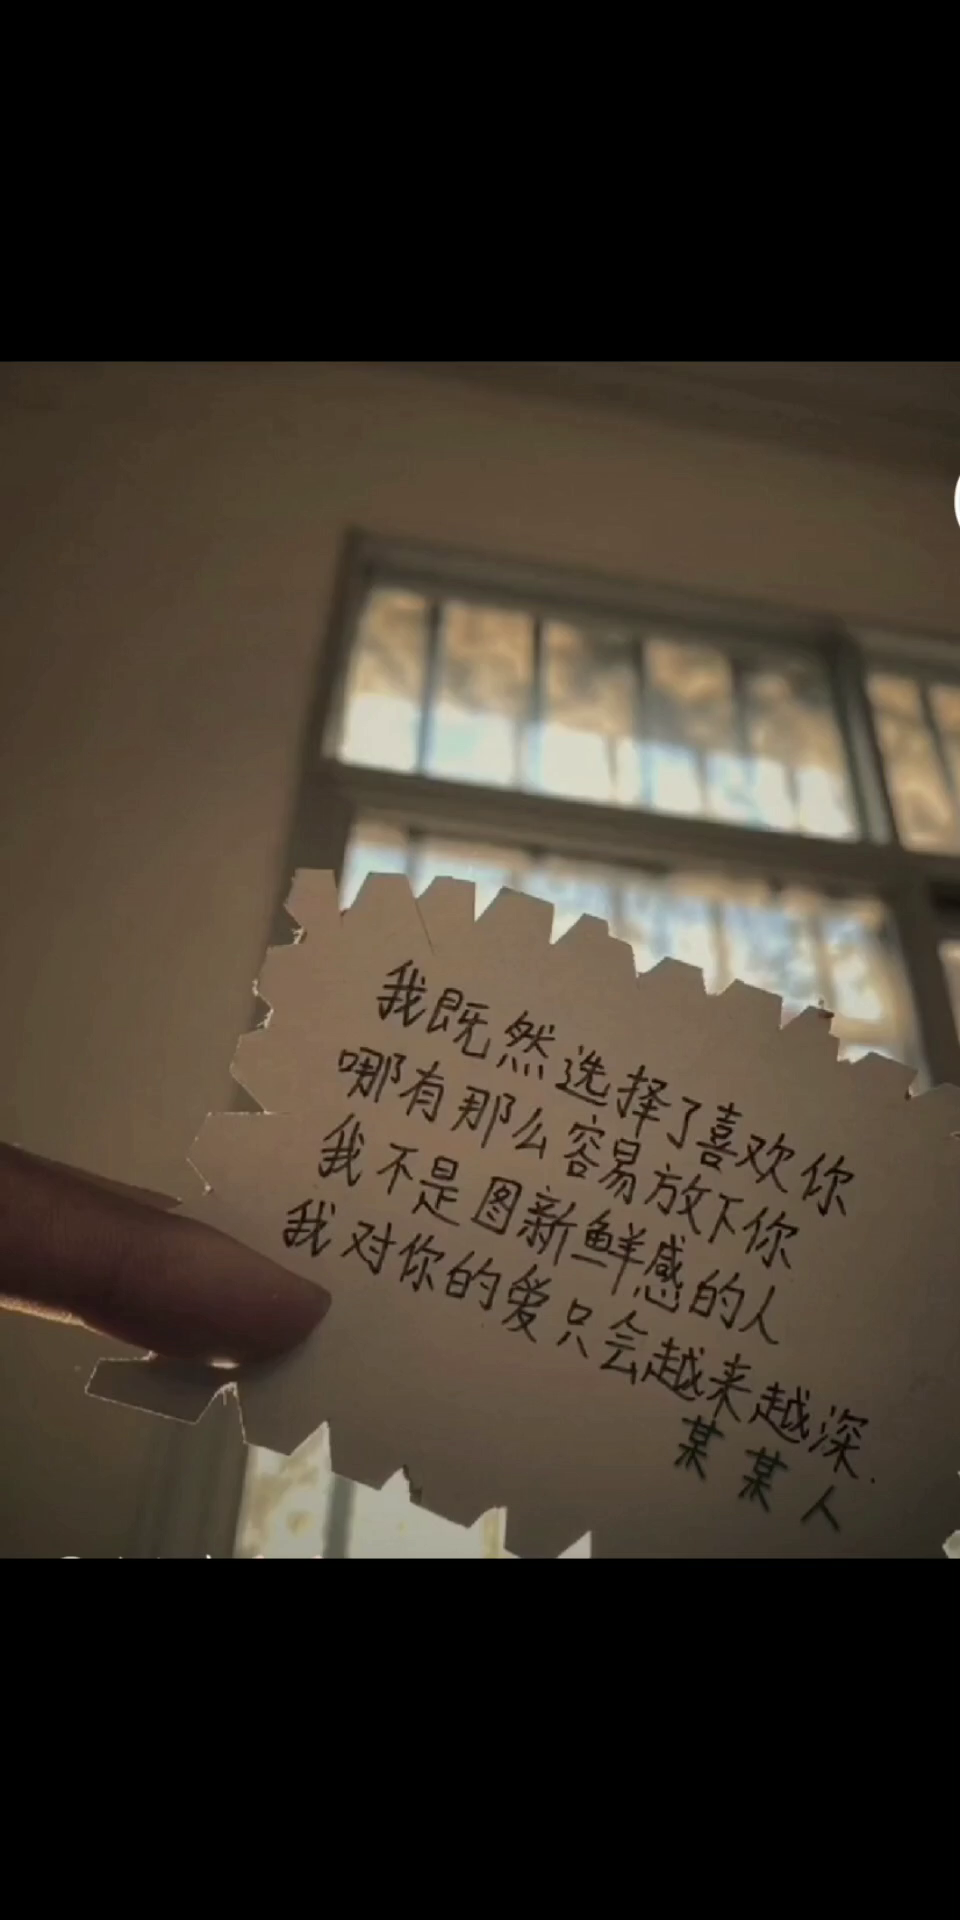 我既然选择了喜欢你
哪有那么容易放下你
我不是图新鲜感的人
我对你的爱只会越来越深.
某某人